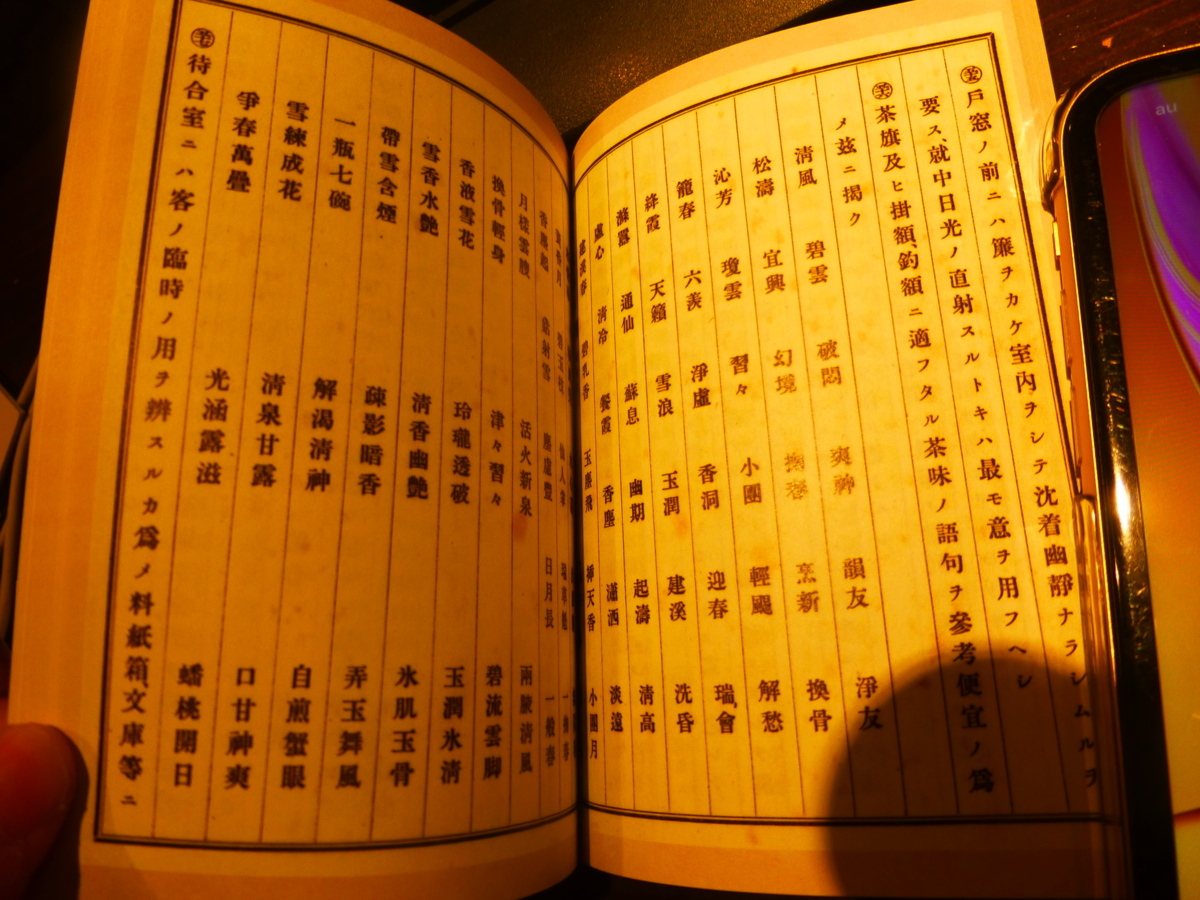 戸窓ノ前ニハ簾ヲカケ室内ヲシテ沈着幽靜ナラシムルヲ
要ス、就中日光ノ直射スルトキハ最モ意ヲ用フヘシ
茶旗及ヒ掛額、釣額ニ適フタル茶味ノ語句ヲ參考便宜ノ爲
メ茲ニ掲ク
清風 碧雲 破悶 爽神 韻友 淨友
松濤 宜興 幻境 烹新 換骨
沁芳 瓊雲 習々 小團 輕颸 解愁
籠春 六羨 淨慮 香洞 迎春 瑞會
絳霞 天籟 雪浪 玉潤 建溪 洗昏
滌煩 通仙 蘇息 幽期 起濤 清高
虛心 清冷 餐霞 香塵 瀟洒 淡遠
碧乳香 玉塵飛 補天香 小團月
一般春
香塵起 日月長
月桂雲腴 活火新泉 兩腋清風
換骨輕身 津々習々 碧流雲脚
香液雪花 玲瓏透破 玉潤氷清
雪香水艶 清香幽艶 氷肌玉骨
帶雪含煙 疎影暗香 弄玉舞風
一瓶七碗 解渴清神 自煎蟹眼
雪練成花 清泉甘露 口甘神爽
爭春萬疊 光涵露滋 蟠桃開日
待合室ニハ客ノ臨時ノ用ヲ辨スルカ爲メ料紙箱、文庫等ニ
au